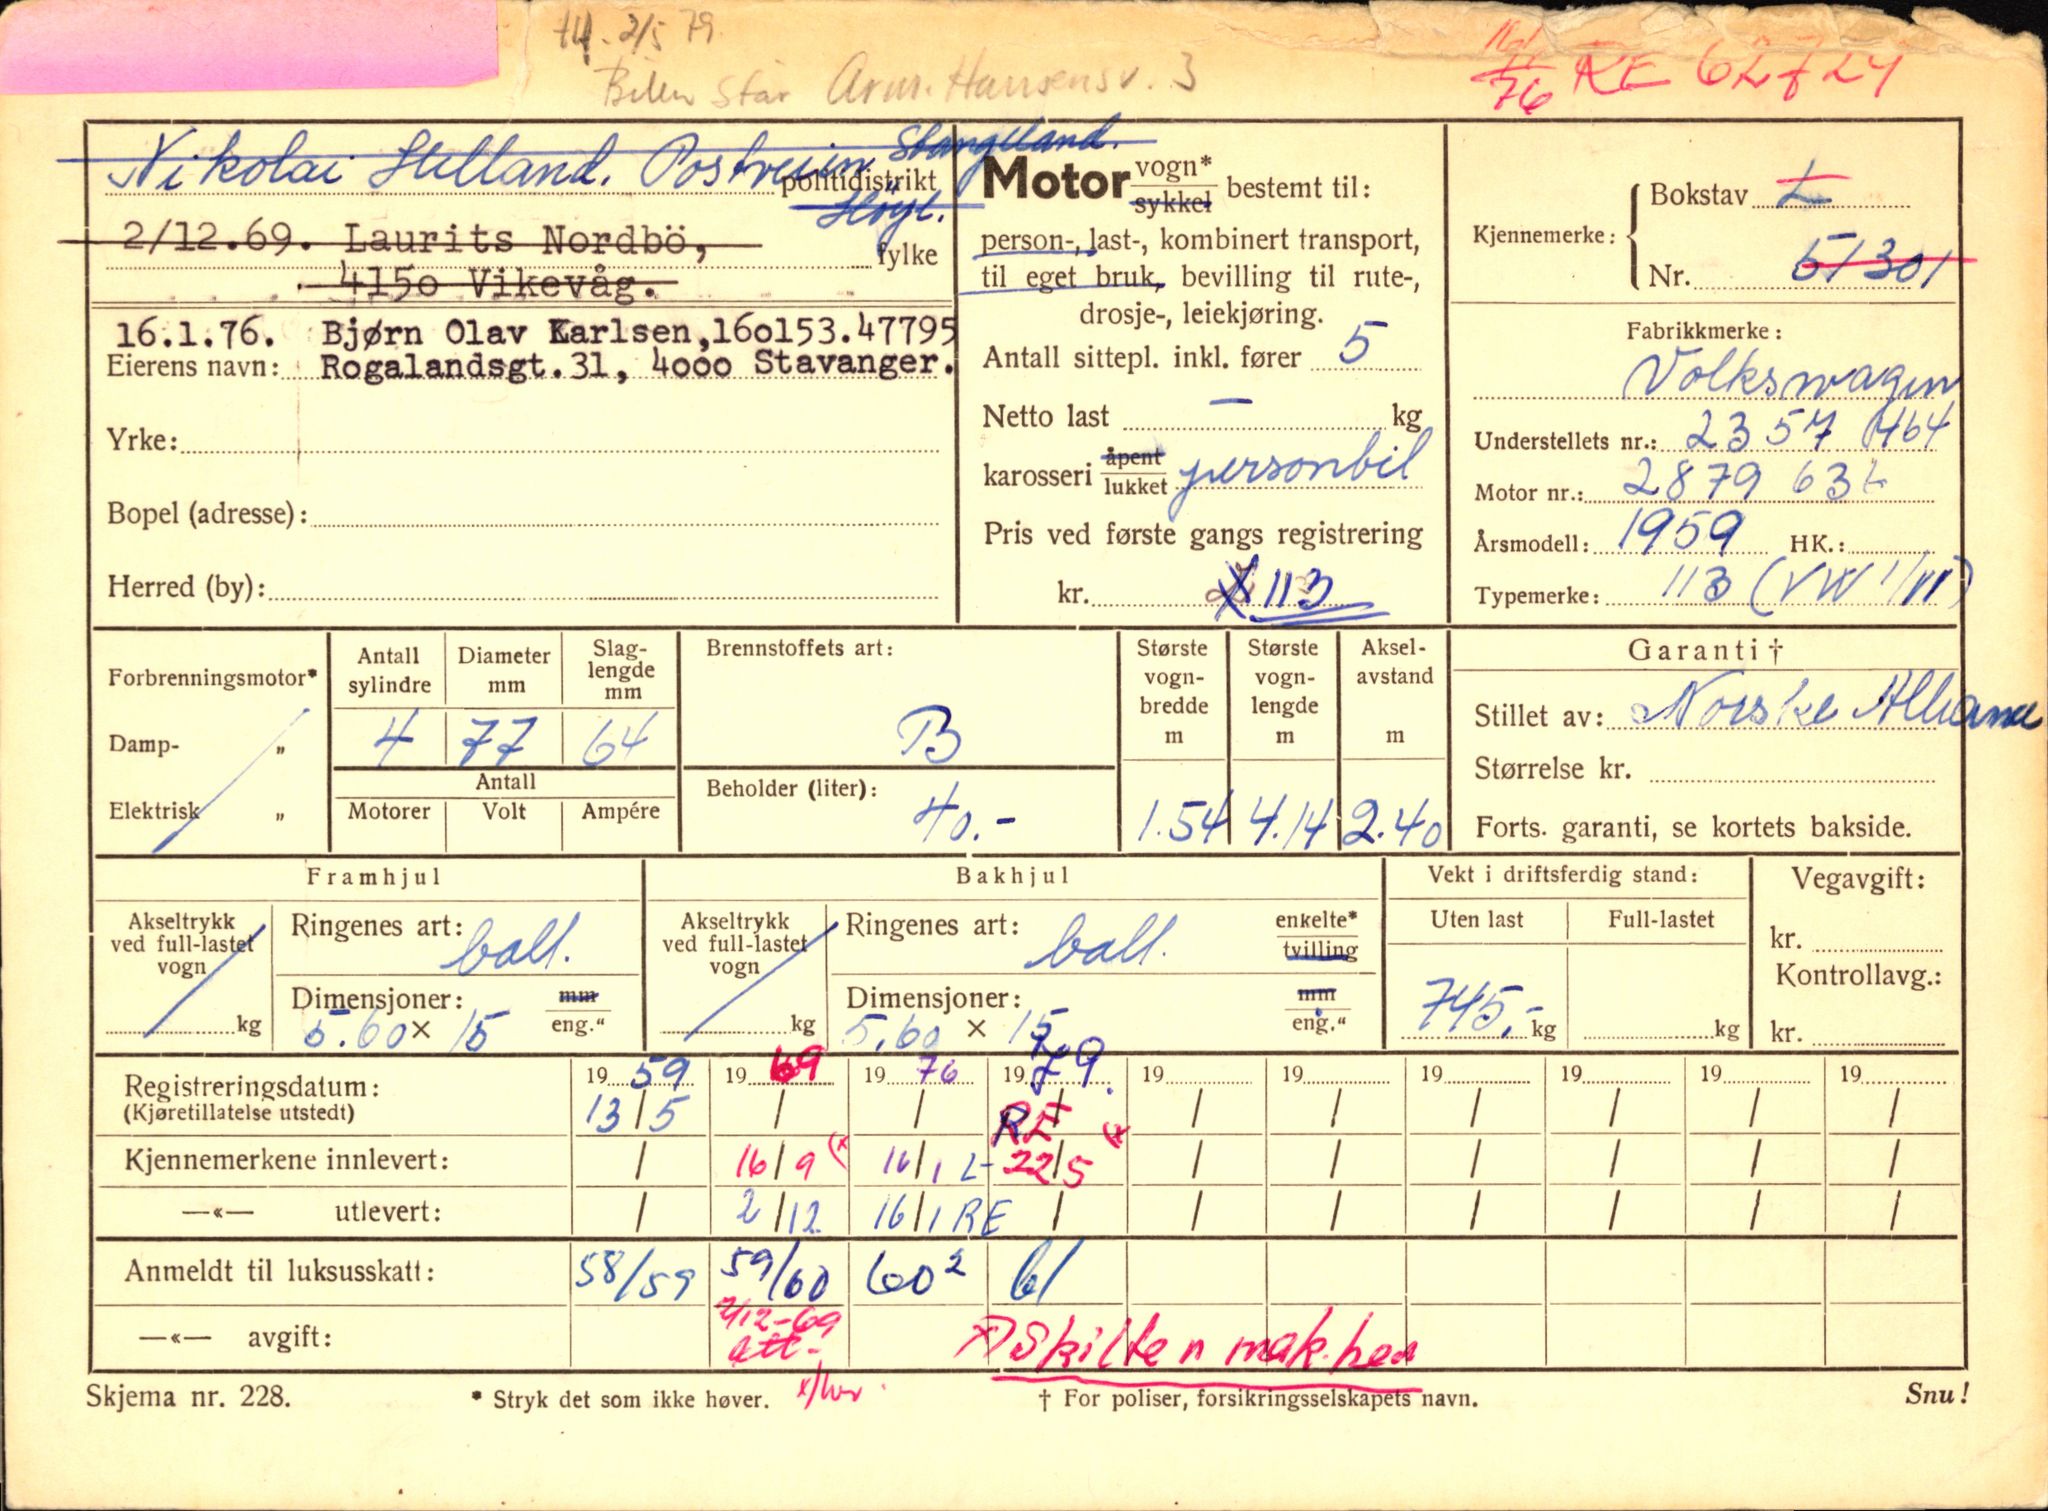 2/5 79.
Bilen står Arm. Hansensv. 3
76 RE 62724
Nikolai Helland. Postveien Stangeland.
politidistrikt
Høyl.
2/12.69. Laurits Nordbö,
fylke
4150 Vikevåg.
16.1.76. Bjørn Olav Karlsen,160153.47795
Eierens navn: Rogalandsgt.31, 4000 Stavanger.
Yrke:
Bopel (adresse):
Herred (by):
Motor vogn* sykkel bestemt til:
person-, last-, kombinert transport,
til eget bruk, bevilling til rute-,
drosje-, leiekjøring.
Antall sittepl. inkl. fører 5
Netto last — kg
karosseri åpent lukket personbil
Pris ved første gangs registrering
kr. X 113
Kjennemerke: Bokstav L
Nr. 51301
Fabrikkmerke:
Volkswagen
Understellets nr.: 2357 464
Motor nr.: 2879 632
Årsmodell: 1959 HK.:
Typemerke: 113 (VW 1/11)
Forbrenningsmotor*
Damp- „
Elektrisk „
Antall sylindre Diameter mm Slaglengde mm
4 77 64
Antall
Motorer Volt Ampére
Brennstoffets art:
B
Beholder (liter):
40.-
Største vognbredde m Største vognlengde m Akselavstand m
1.54 4.14 2.40
Garanti †
Stillet av: Norske Alliance
Størrelse kr.
Forts. garanti, se kortets bakside.
Framhjul
Akseltrykk ved full-lastet vogn
kg
Ringenes art: ball.
Dimensjoner: mm
5.60 × 15 eng."
Bakhjul
Akseltrykk ved full-lastet vogn
kg
Ringenes art: ball. enkelte* tvilling
Dimensjoner: mm
5.60 × 15 eng."
Vekt i driftsferdig stand:
Uten last Full-lastet
745,- kg kg
Vegavgift:
kr.
Kontrollavg.:
kr.
Registreringsdatum: 19 59 19 69 19 76 19 79. 19 19 19 19 19 19
(Kjøretillatelse utstedt) 13/5 / / RE / / / / / / /
Kjennemerkene innlevert: / 16/9 (x 16/1 L 22/5 (x / / / / / /
—«— utlevert: / 2/12 16/1 RE / / / / / / /
Anmeldt til luksusskatt: 58/59 59/60 60² 61
—«— avgift: 2/12-69 att. x) Skilte n mak.
Skjema nr. 228.
* Stryk det som ikke høver.
† For poliser, forsikringsselskapets navn.
Snu!